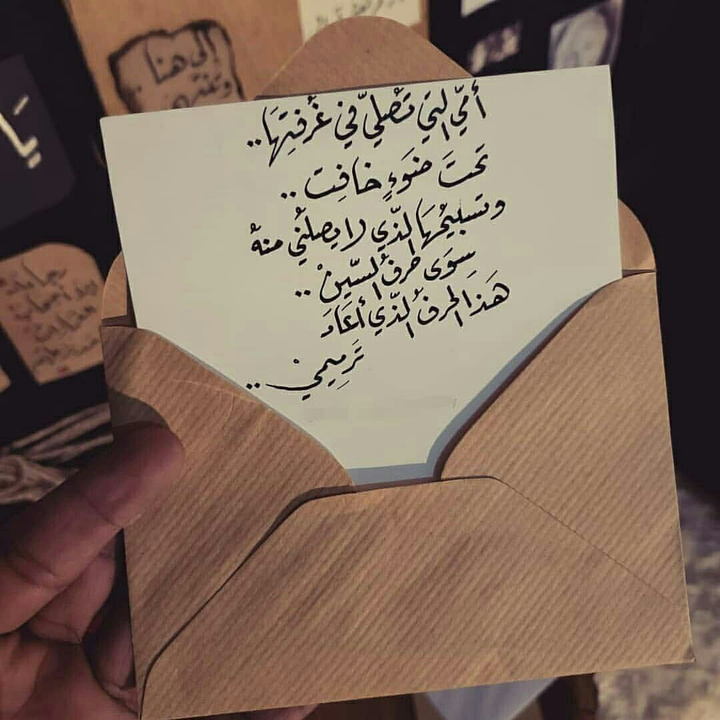 أمّي التي تصلّي في غرفتِهَا..
تحتَ ضوَءٍ خافِت..
وتسبيْحهَا الذّي لا يصلُني منهُ
سِوَى حرفُ السّينْ..
هَذا الحرفُ الذّي أعَادَ
تَرمِيمي..
إلى هنا
يا